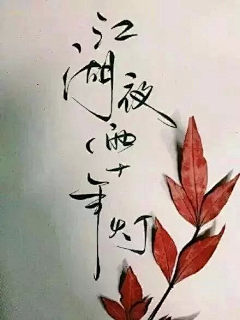 江湖夜雨十年灯